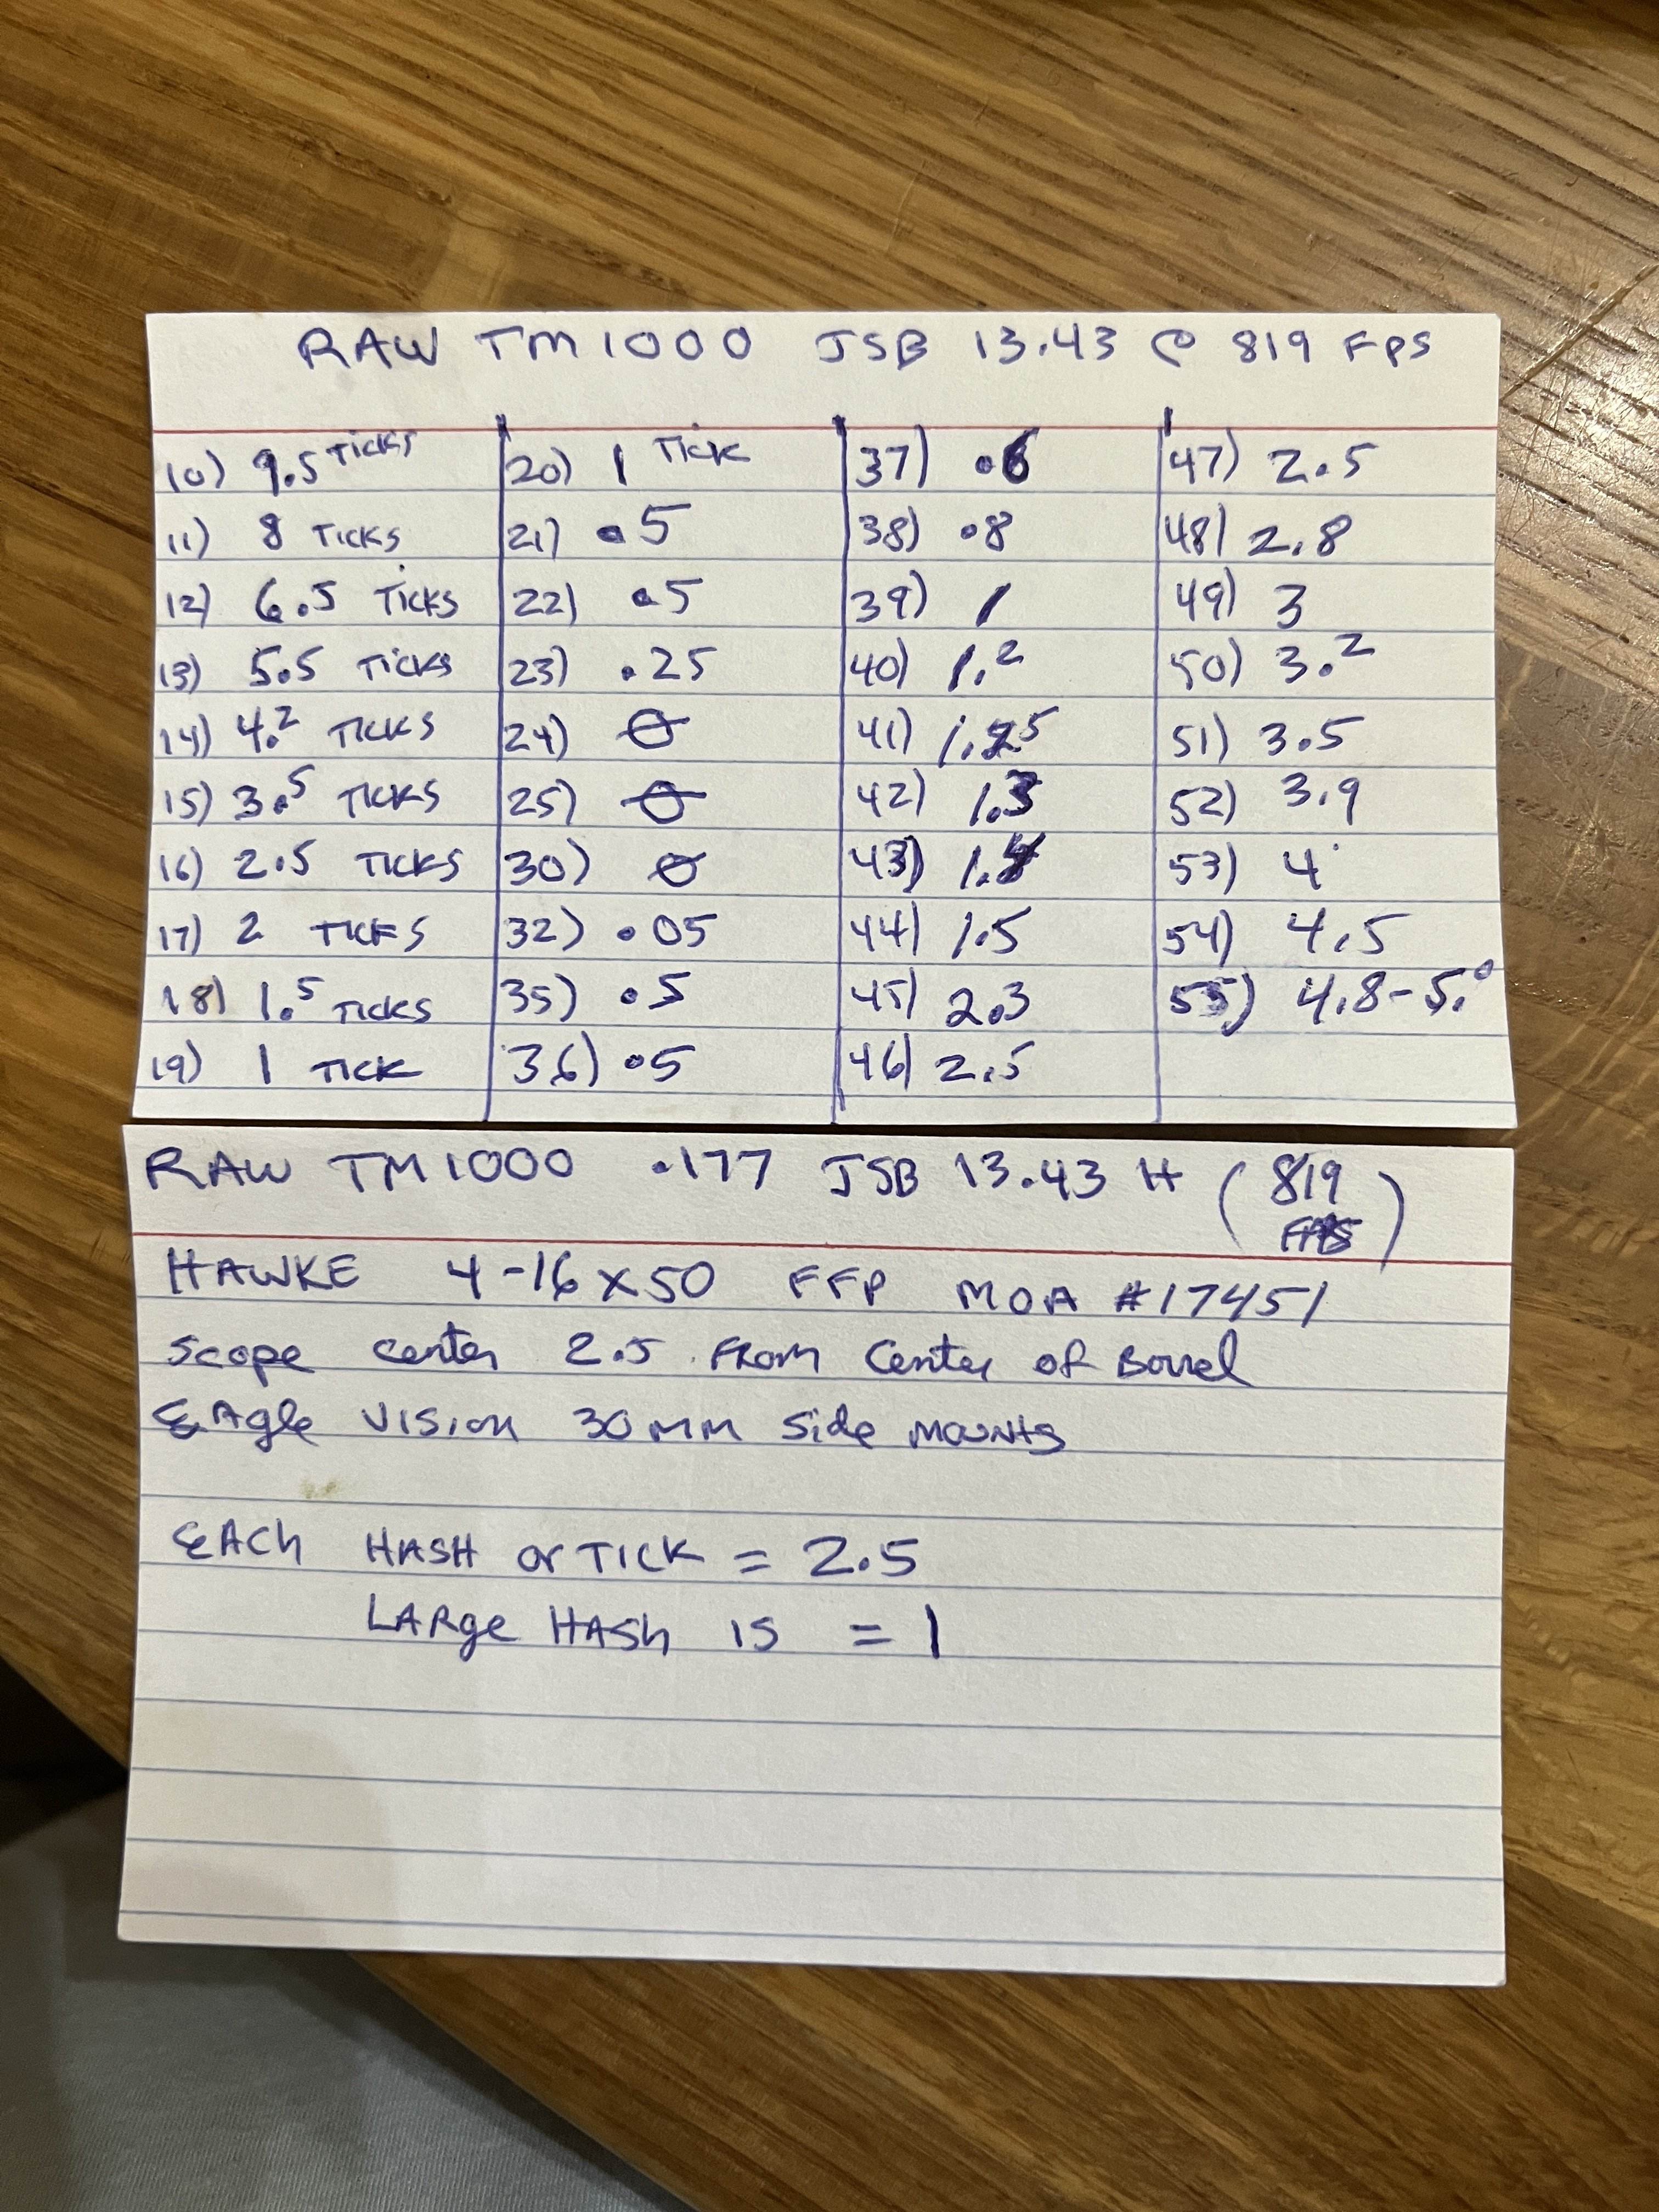 RAW TM1000 JSB 13.43 @ 819 FPS
10) 9.5 TICKS
11) 8 TICKS
12) 6.5 TICKS
13) 5.5 TICKS
14) 4.2 TICKS
15) 3.5 TICKS
16) 2.5 TICKS
17) 2 TICKS
18) 1.5 TICKS
19) 1 TICK
20) 1 TICK
21) .5
22) .5
23) .25
24) 0
25) 0
30) 0
32) .05
35) .5
36) .5
37) .6
38) .8
39) 1
40) 1.2
41) 1.25
42) 1.3
43)
44) 1.5
45) 2.3
46) 2.5
47) 2.5
48) 2.8
49) 3
50) 3.2
51) 3.5
52) 3.9
53) 4
54) 4.5
55) 4.8-5.0
RAW TM1000 .177 JSB 13.43 H (819 FPS)
HAWKE 4-16x50 FFP MOA #17451
Scope center 2.5 From Center of Barrel
EAgle Vision 30mm Side mounts
EACh HASH or TICK = 2.5
LARge HASh is = 1